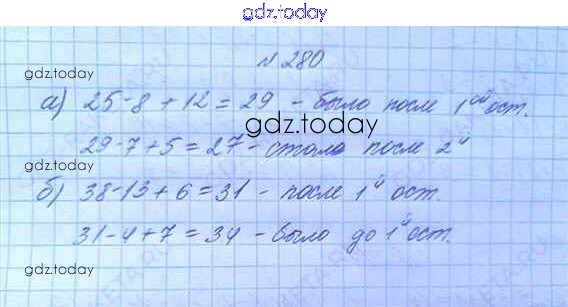 gdz.today
№ 280
gdz.today
а) 25-8+12=29 - было после 1ой ост.
gdz.today
29-7+5=27 - стало после 2й
б) 38-13+6=31 - после 1й ост.
gdz.today
31-4+7=34 - было до 1й ост.
gdz.today
gdz.today